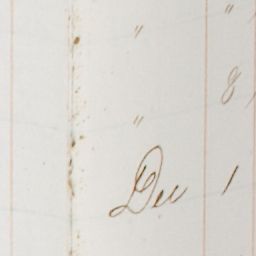 "
" 8
Dec 1